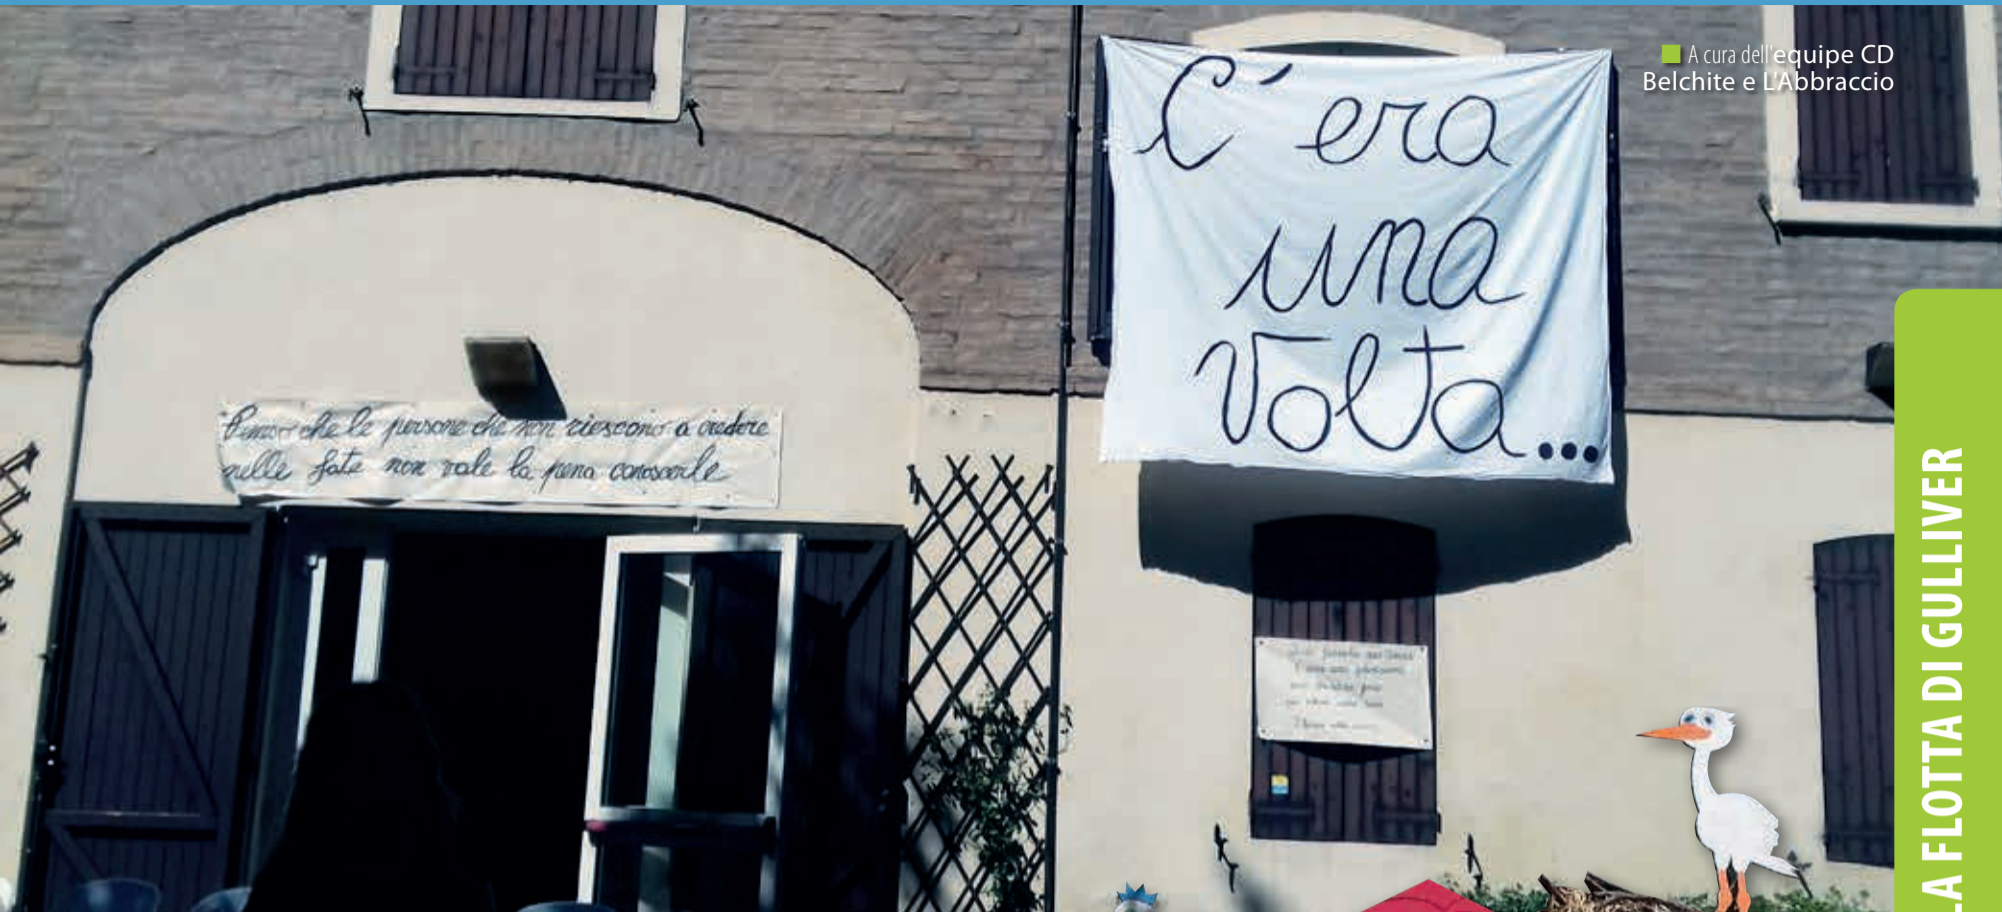 A cura dell'equipe CD
Belchite e L'Abbraccio
C'era
una
Volta...
Penso che le persone che non riescono a credere
nelle fate non vale la pena conoscerle
LA FLOTTA DI GULLIVER